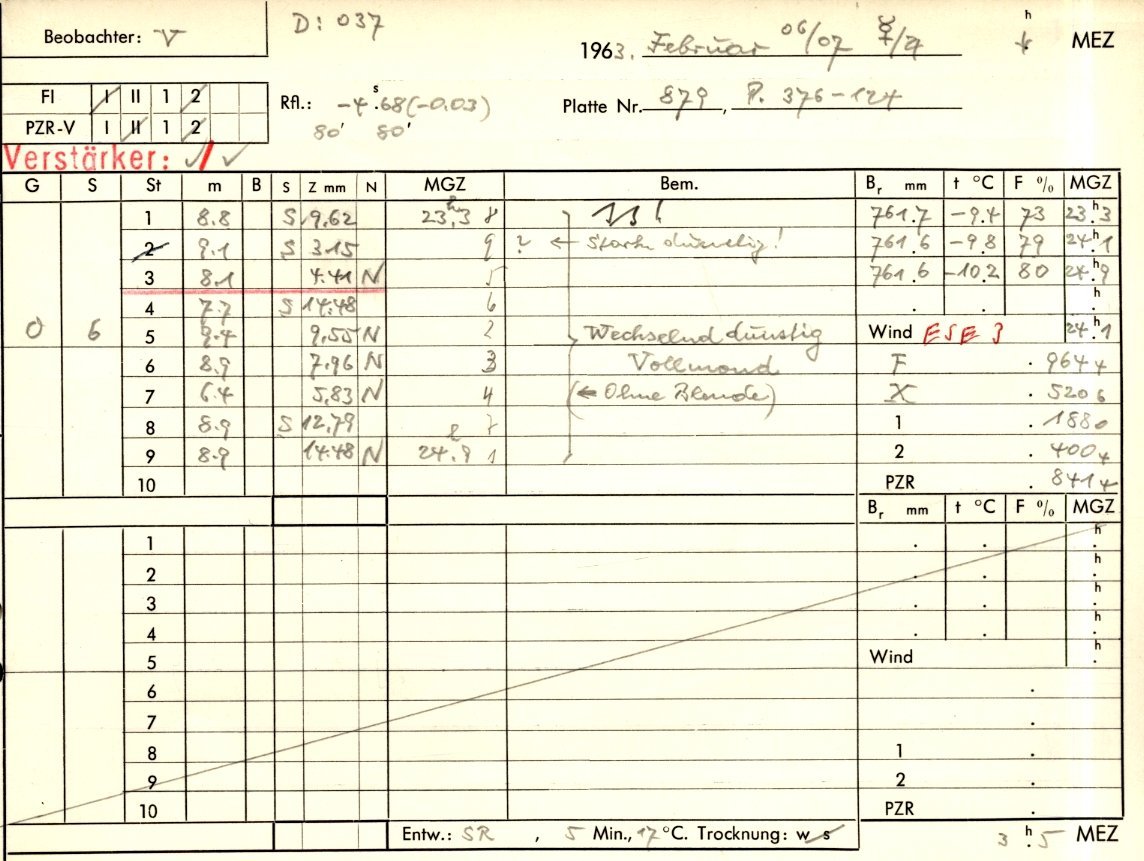 D: 037
Beobachter: V
1963. Februar 06/07 ☿/♃ h MEZ
FI I II 1 2
Rfl.: -4ˢ.68(-0.03)
Platte Nr. 879, P. 376-124
PZR-V I II 1 2
80' 80'
Verstärker: √/√
G S St m B S Z mm N MGZ Bem. Bᵣ mm t °C F % MGZ
1 8.8 S 9.62 23ʰ.3 8 761.7 -9.4 73 23ʰ.3
2 9.1 S 3.15 9 ? ← Stark dunstig! 761.6 -9.8 79 24ʰ.1
3 8.1 4.41 N 5 761.6 -10.2 80 24ʰ.9
4 7.7 S 14.48 6 . . h .
0 6 5 9.4 9.55 N 2 Wechselnd dunstig Wind ESE 3 24ʰ.1
6 8.9 7.96 N 3 Vollmond F . 9644
7 6.4 5.83 N 4 (← Ohne Blende) X . 5206
8 8.9 S 12.79 7 1 . 1880
9 8.9 14.48 N 24ʰ.9 1 2 . 4004
10 PZR . 8414
Bᵣ mm t °C F % MGZ
1 . . h .
2 . . h .
3 . . h .
4 . . h .
5 Wind h .
6 .
7 .
8 1 .
9 2 .
10 PZR .
Entw.: SR , 5 Min., 17°C. Trocknung: w s 3ʰ.5 MEZ